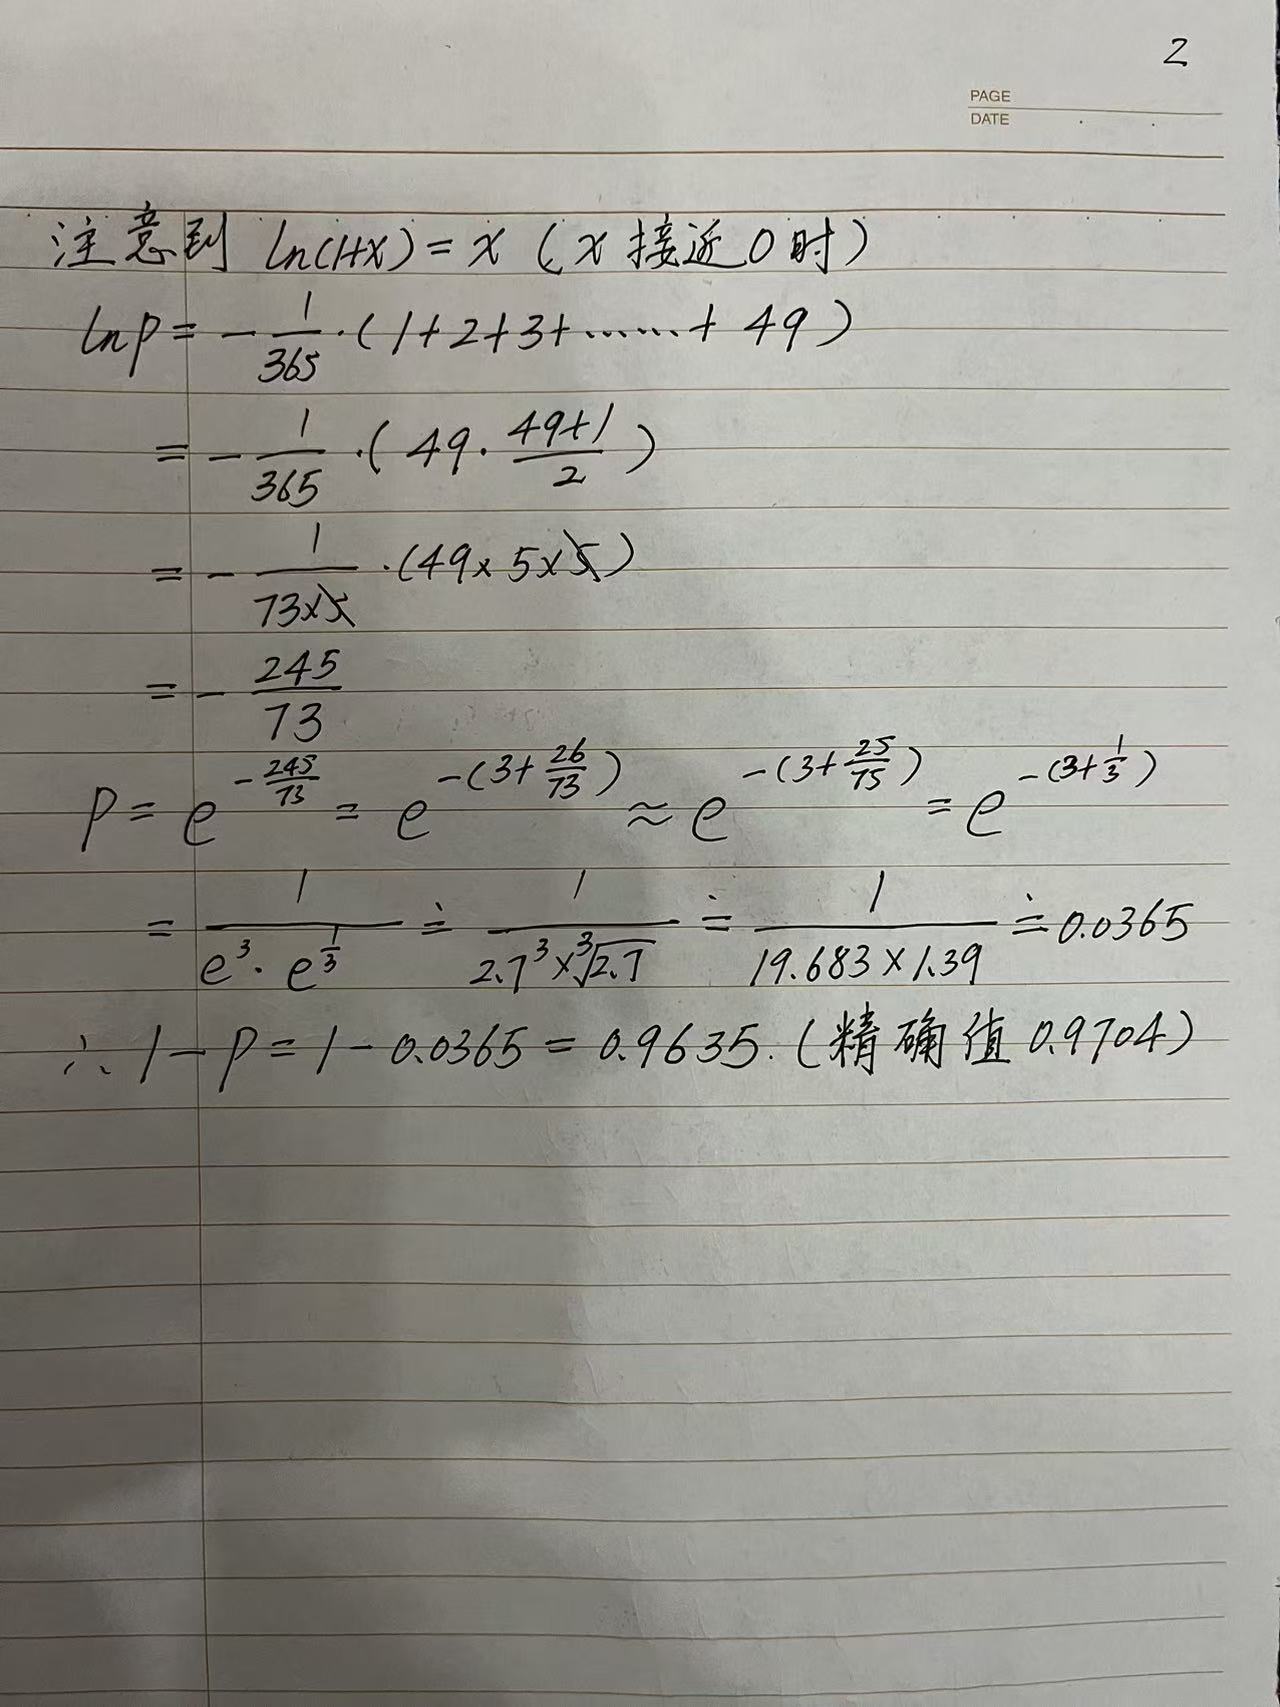 2
PAGE
DATE
注意到 ln(1+x) = x (x 接近 0 时)
lnP = - 1/365 · (1+2+3+……+ 49)
= - 1/365 · (49 · (49+1)/2)
= - 1/(73×5) · (49×5×5)
= - 245/73
P = e^(-245/73) = e^(-(3+26/73)) ≈ e^(-(3+25/75)) = e^(-(3+1/3))
= 1/(e³ · e^(1/3)) ≐ 1/(2.7³×∛2.7) ≐ 1/(19.683×1.39) ≐ 0.0365
∴ 1-P = 1-0.0365 = 0.9635. (精确值 0.9704)